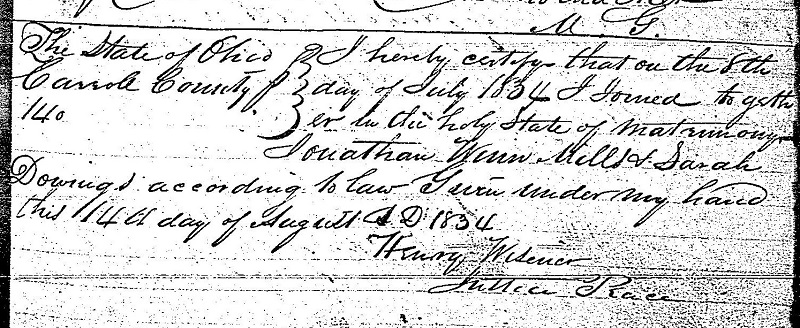 M. G.
The State of Ohio } I hereby certify that on the 8th
Carroll County } day of July 1834 I Joined togeth
140 } er in the holy State of matrimony
Jonathan Winn Mills & Sarah
Downgs according to law Given under my hand
this 14th day of August A D 1834
Henry Wisener
Justice Peace